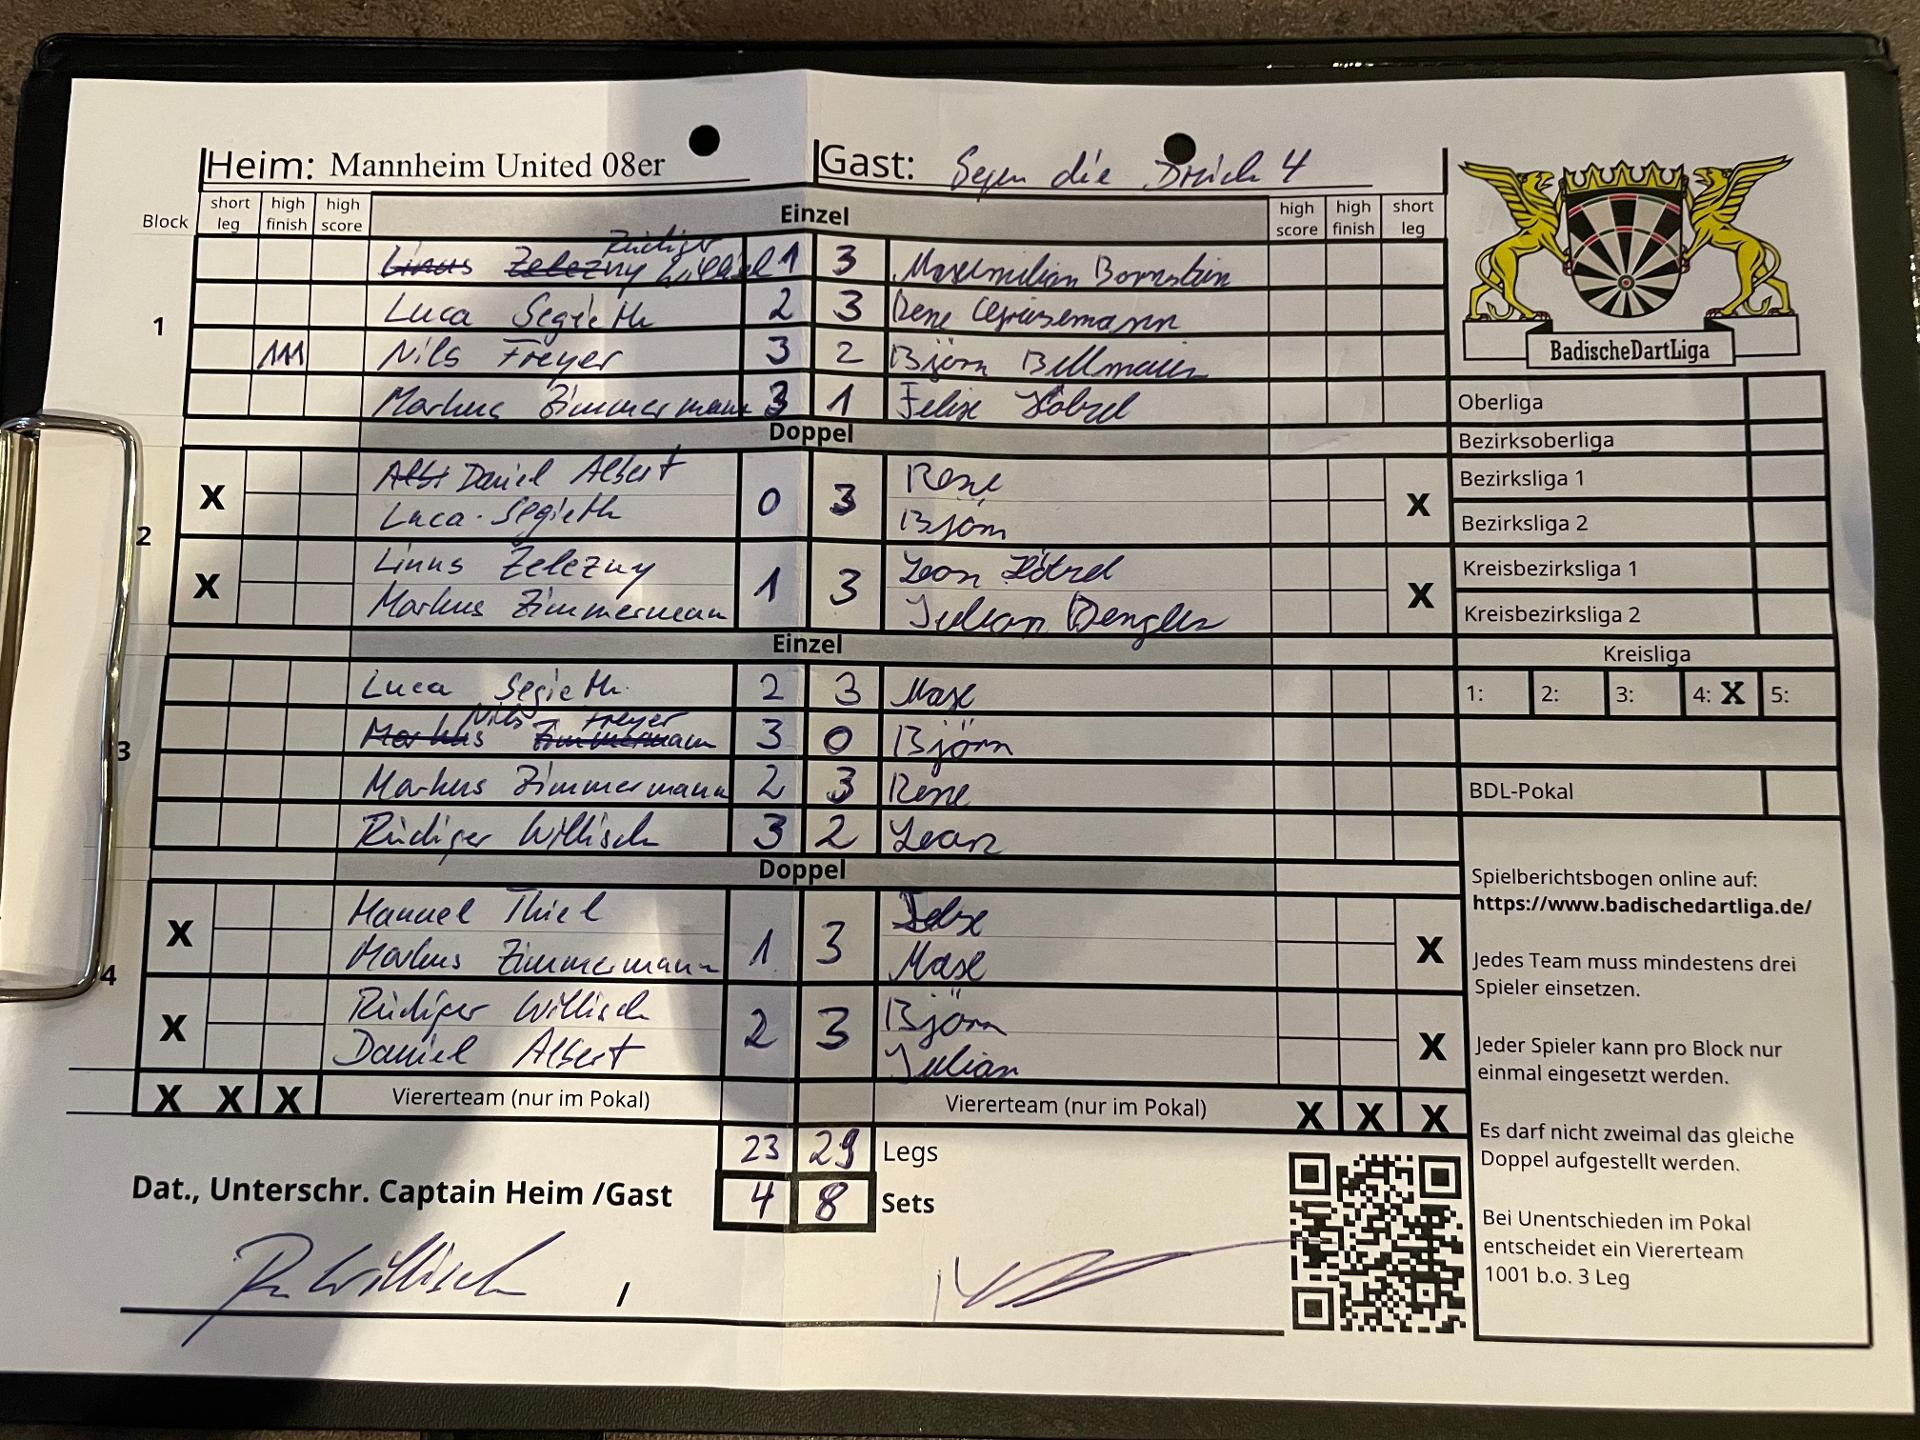 Heim: Mannheim United 08er Gast: Gegen die Drück 4
Block short leg high finish high score Einzel high score high finish short leg
1
Linus Železny Rüdiger Willisch 1 3 Maximilian Bornstein
Luca Segieth 2 3 Rene
111 Nils Freyer 3 2 Björn Bellmann
Markus Zimmermann 3 1 Felix Hötzel
Doppel
2
X Albr Daniel Albert 0 3 Rene X
Luca Segieth Björn
X Linus Železny 1 3 Leon Hötzel X
Markus Zimmermann Julian Dengler
Einzel
3
Luca Segieth 2 3 Max
Markus Zimmermann Nils Freyer 3 0 Björn
Markus Zimmermann 2 3 Rene
Rüdiger Willisch 3 2 Leon
Doppel
4
X Manuel Thiel 1 3 Felix X
Markus Zimmermann Max
X Rüdiger Willisch 2 3 Björn X
Daniel Albert Julian
X X X Viererteam (nur im Pokal) Viererteam (nur im Pokal) X X X
23 29 Legs
Dat., Unterschr. Captain Heim /Gast 4 8 Sets
R. Willisch /
BadischeDartLiga
Oberliga
Bezirksoberliga
Bezirksliga 1
Bezirksliga 2
Kreisbezirksliga 1
Kreisbezirksliga 2
Kreisliga
1: 2: 3: 4: X 5:
BDL-Pokal
Spielberichtsbogen online auf:
https://www.badischedartliga.de/
Jedes Team muss mindestens drei
Spieler einsetzen.
Jeder Spieler kann pro Block nur
einmal eingesetzt werden.
Es darf nicht zweimal das gleiche
Doppel aufgestellt werden.
Bei Unentschieden im Pokal
entscheidet ein Viererteam
1001 b.o. 3 Leg